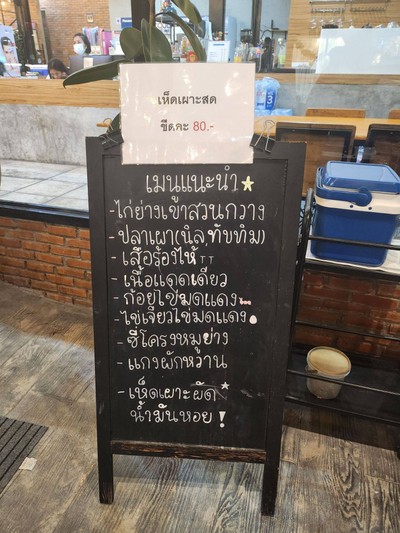 เห็ดเผาะสด
ขีดละ 80.-
เมนูแนะนำ
-ไก่ย่างเขาสวนกวาง
-ปลาเผา(นิล,ทับทิม)
-เสือร้องไห้TT
-เนื้อแดดเดียว
-ก้อยไข่มดแดง
-ไข่เจียวไข่มดแดง
-ซี่โครงหมูย่าง
-แกงผักหวาน
-เห็ดเผาะผัด
น้ำมันหอย!